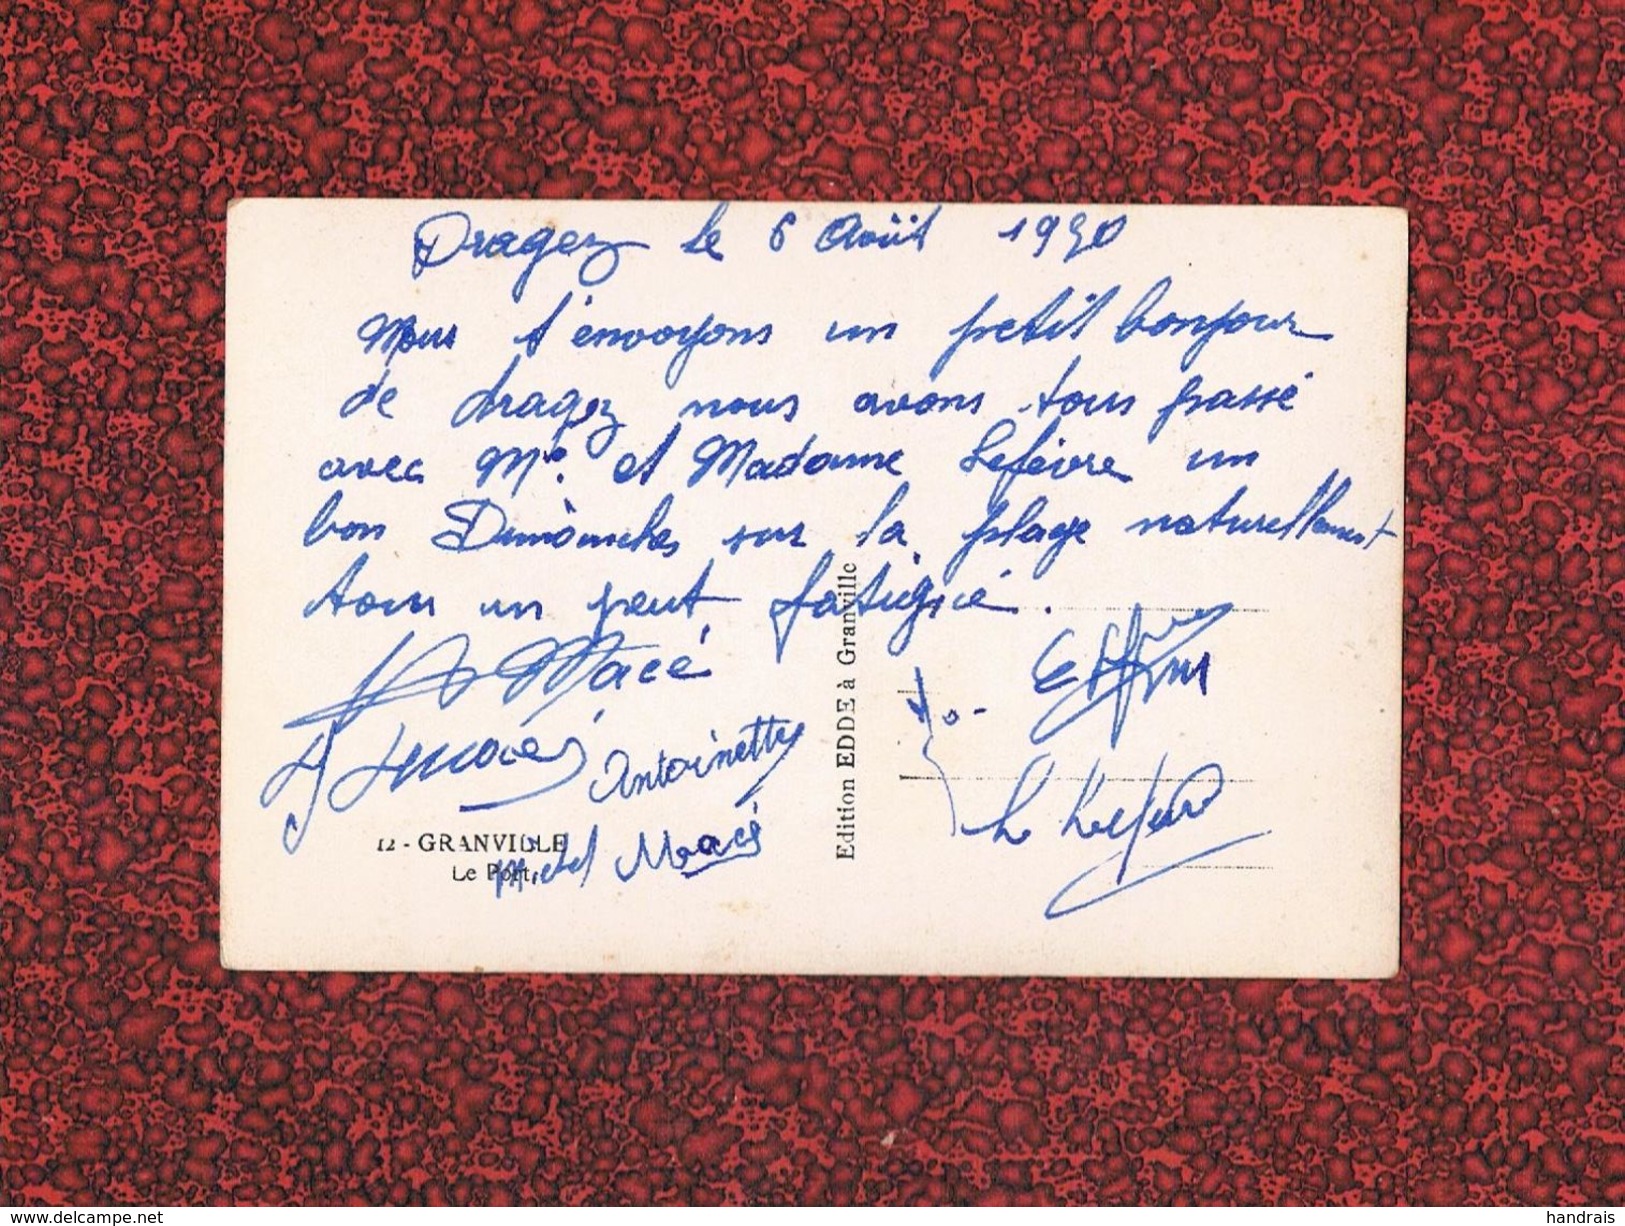 Dragez le 6 Août 1950
Nous t'envoyons un petit bonjour
de dragez nous avons tous passé
avec Mr. et Madame Lefèvre un
bon Dimanche sur la plage naturellement
tous un peut fatigué.
Macé
Antoinette
Michel Macé
12 - GRANVILLE
Le Port.
Edition EDDE à Granville
www.delcampe.net
handrais